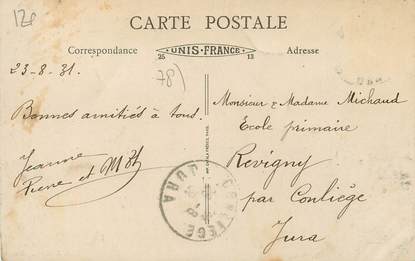 12f
CARTE POSTALE
Correspondance
25 UNIS-FRANCE 13
Adresse
23-8-31.
78)
Bonnes amitiés à tous.
Jeanne
Pierre et
Monsieur & Madame Michaud
Ecole primaire
Revigny
par Conliège
Jura
CONLIEGE
JURA